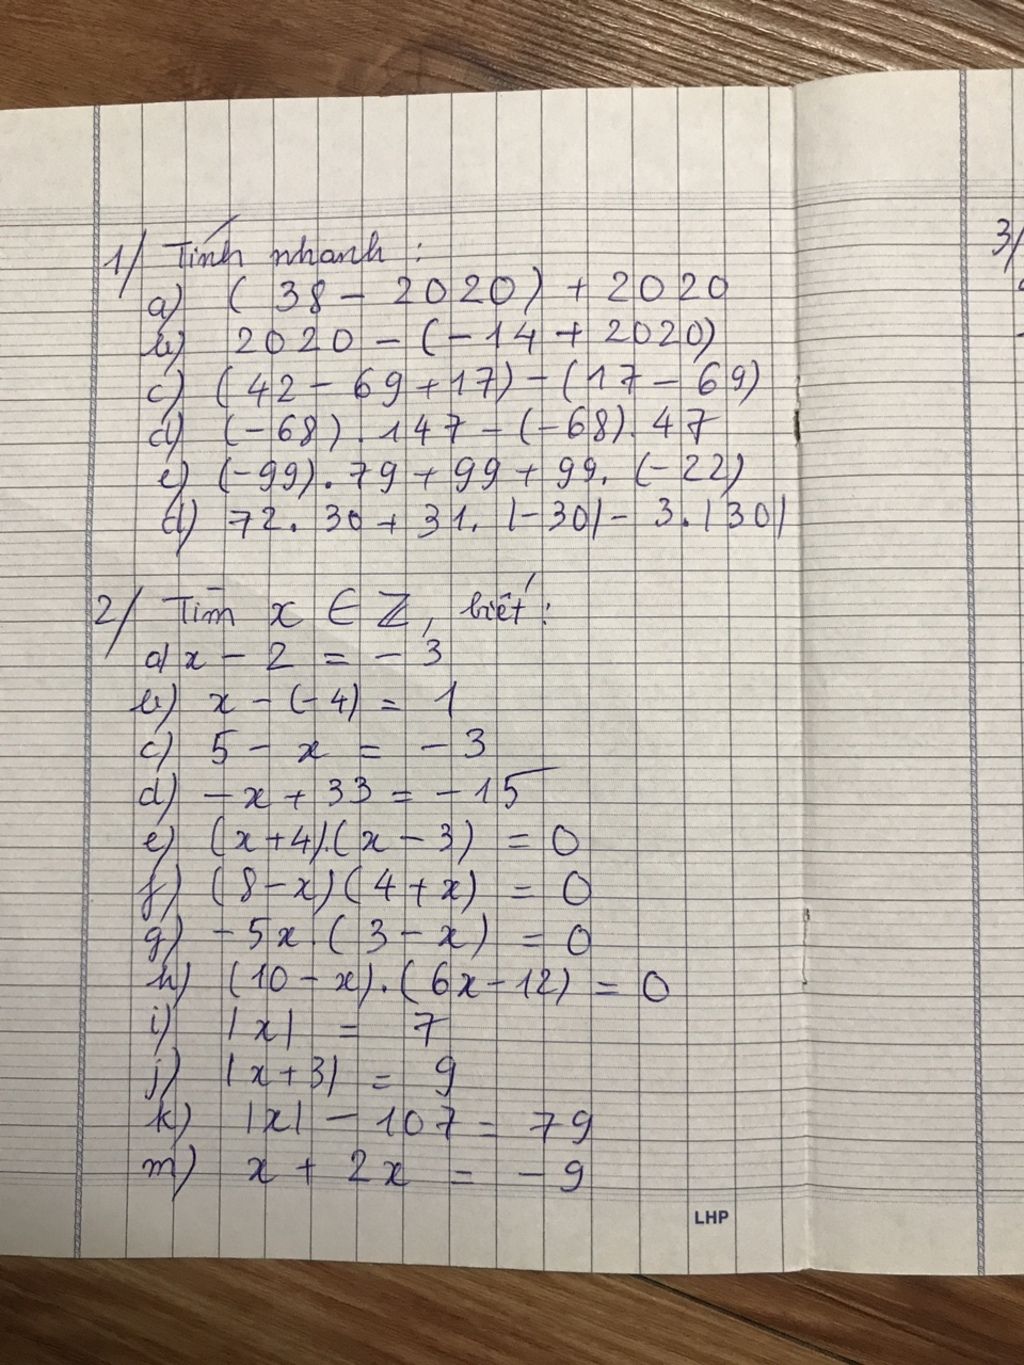 1/ Tính nhanh :
a) ( 38 - 2020) + 2020
b) 2020 - (-14 + 2020)
c) (42 - 69 + 17) - (17 - 69)
d) (-68) . 147 - (-68) . 47
e) (-99) . 79 + 99 + 99. (-22)
d) 72. 30 + 31. |-30| - 3. |30|
2/ Tìm x ∈ Z, biết :
a) x - 2 = - 3
b) x - (-4) = 1
c) 5 - x = - 3
d) -x + 33 = -15
e) (x+4).(x - 3) = 0
f) (8-x)(4+x) = 0
g) -5x.(3-x) = 0
h) (10-x).(6x-12) = 0
i) |x| = 7
j) |x+3| = 9
k) |x| - 107 = 79
m) x + 2x = - 9
LHP
3/